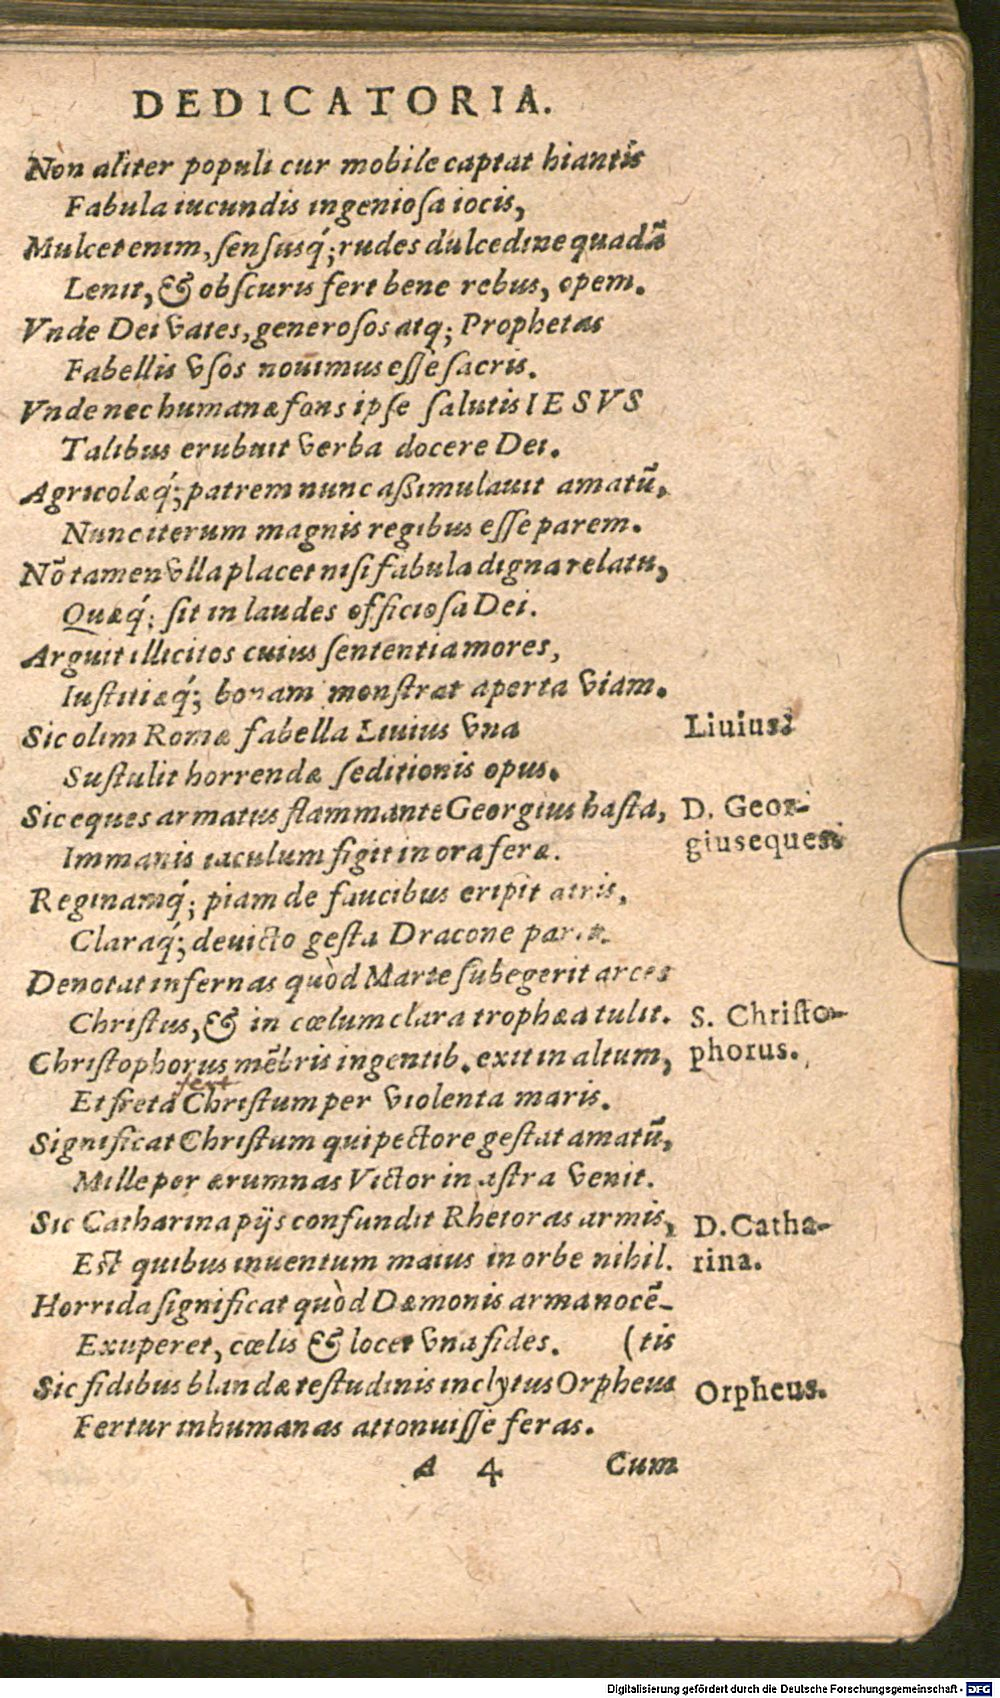 DEDICATORIA.
Non aliter populi cur mobile captat hiantis
Fabula iucundis ingeniosa iocis,
Mulcet enim, sensusq́; rudes dulcedine quadã
Lenit, & obscuris fert bene rebus, opem.
Vnde Dei vates, generosos atq; Prophetas
Fabellis vsos nouimus esse sacris.
Vnde nec humanæ fons ipse salutis IESVS
Talibus erubuit verba docere Dei.
Agricolæq́; patrem nunc aßimulauit amatũ,
Nunc iterum magnis regibus esse parem.
Nõ tamen vlla placet nisi fabula digna relatu,
Quæq́; sit in laudes officiosa Dei.
Arguit illicitos cuius sententia mores,
Iustitiæq́; bonam monstrat aperta viam.
Sic olim Romæ fabella Liuius vna Liuius.
Sustulit horrendæ seditionis opus.
Sic eques armatus flammante Georgius hasta, D. Geor-
Immanis iaculum figit in ora feræ. gius eques.
Reginamq́; piam de faucibus eripit atris,
Claraq́; deuicto gesta Dracone
Denotat infernas quòd Marte subegerit arces
Christus, & in cœlum clara trophæa tulit. S. Christo-
Christophorus mẽbris ingentib. exit in altum, phorus.
fert
Et freta Christum per violenta maris.
Significat Christum qui pectore gestat amatũ,
Mille per ærumnas Victor in astra venit.
Sic Catharina pijs confundit Rhetoras armis, D. Catha-
Est quibus inuentum maius in orbe nihil. rina.
Horrida significat quòd Dæmonis arma nocẽ-
Exuperet, cœlis & locet vna fides. (tis
Sic fidibus blandæ testudinis inclytus Orpheus Orpheus.
Fertur inhumanas attonuisse feras.
A 4 Cum
Digitalisierung gefördert durch die Deutsche Forschungsgemeinschaft - DFG